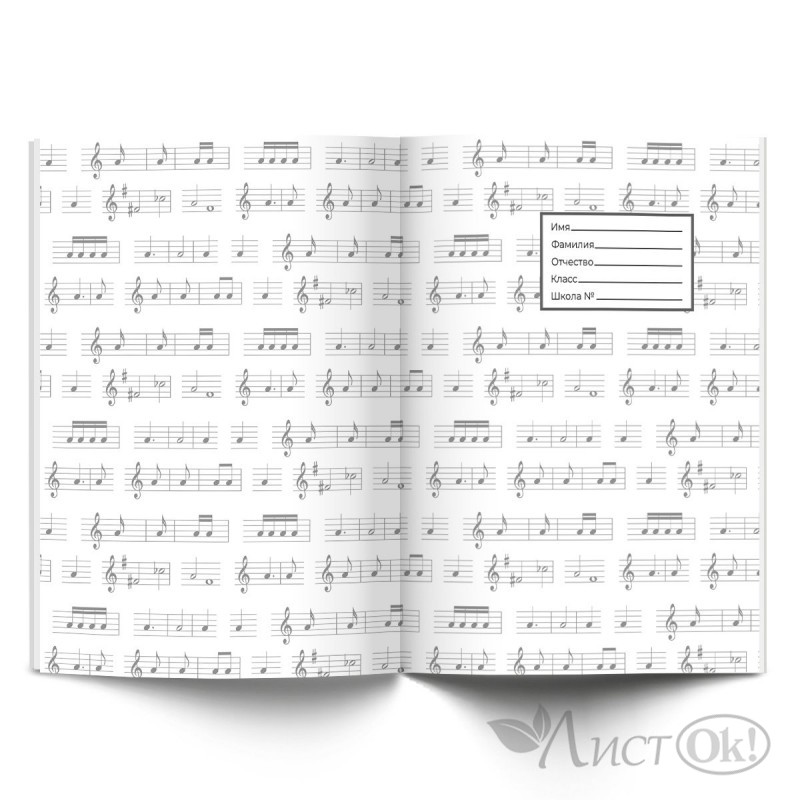 Имя
Фамилия
Отчество
Класс
Школа №
Лист Ok!